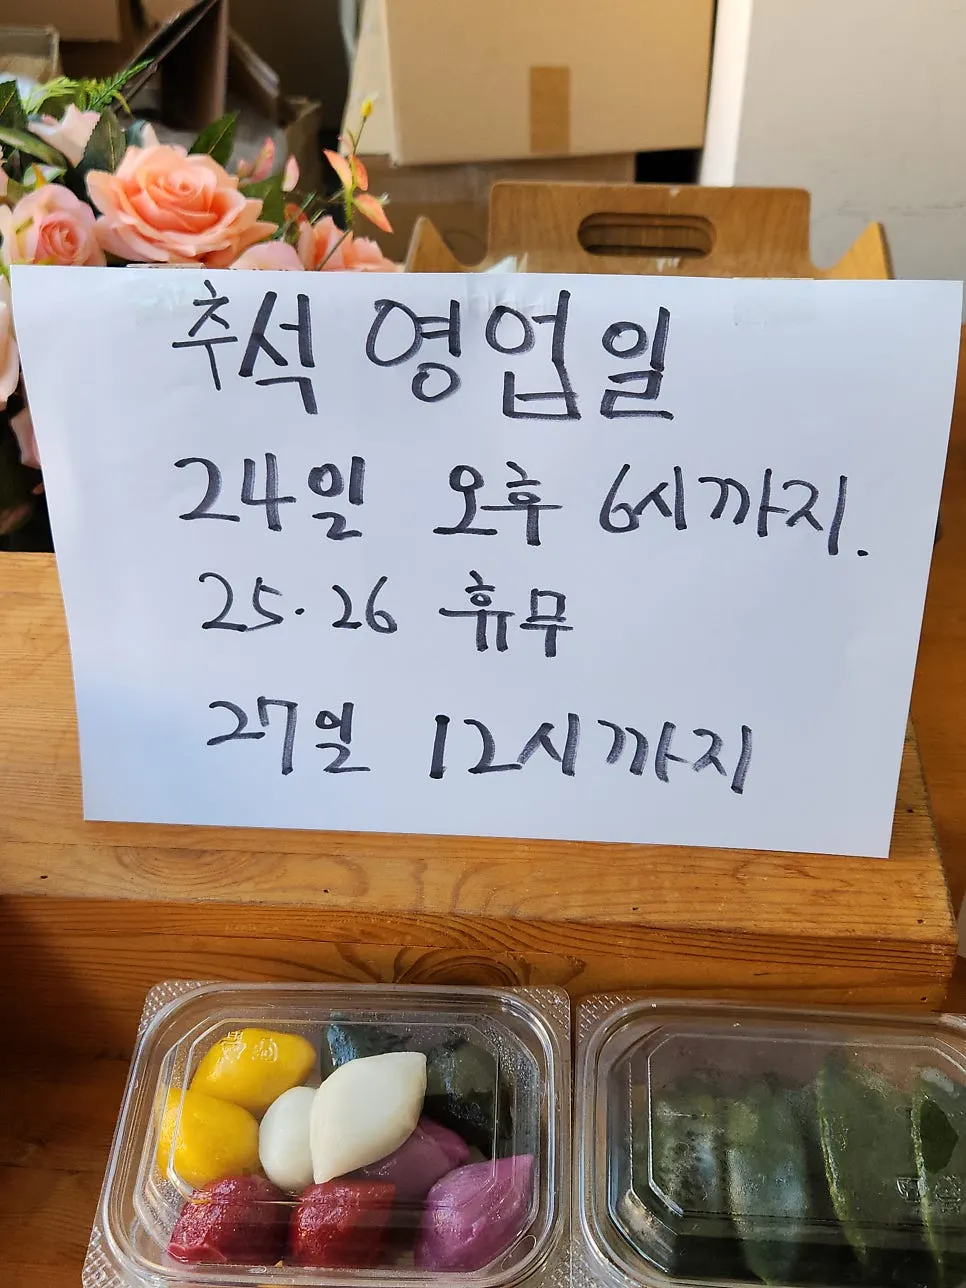 추석 영업일
24일 오후 6시까지.
25·26 휴무
27일 12시까지